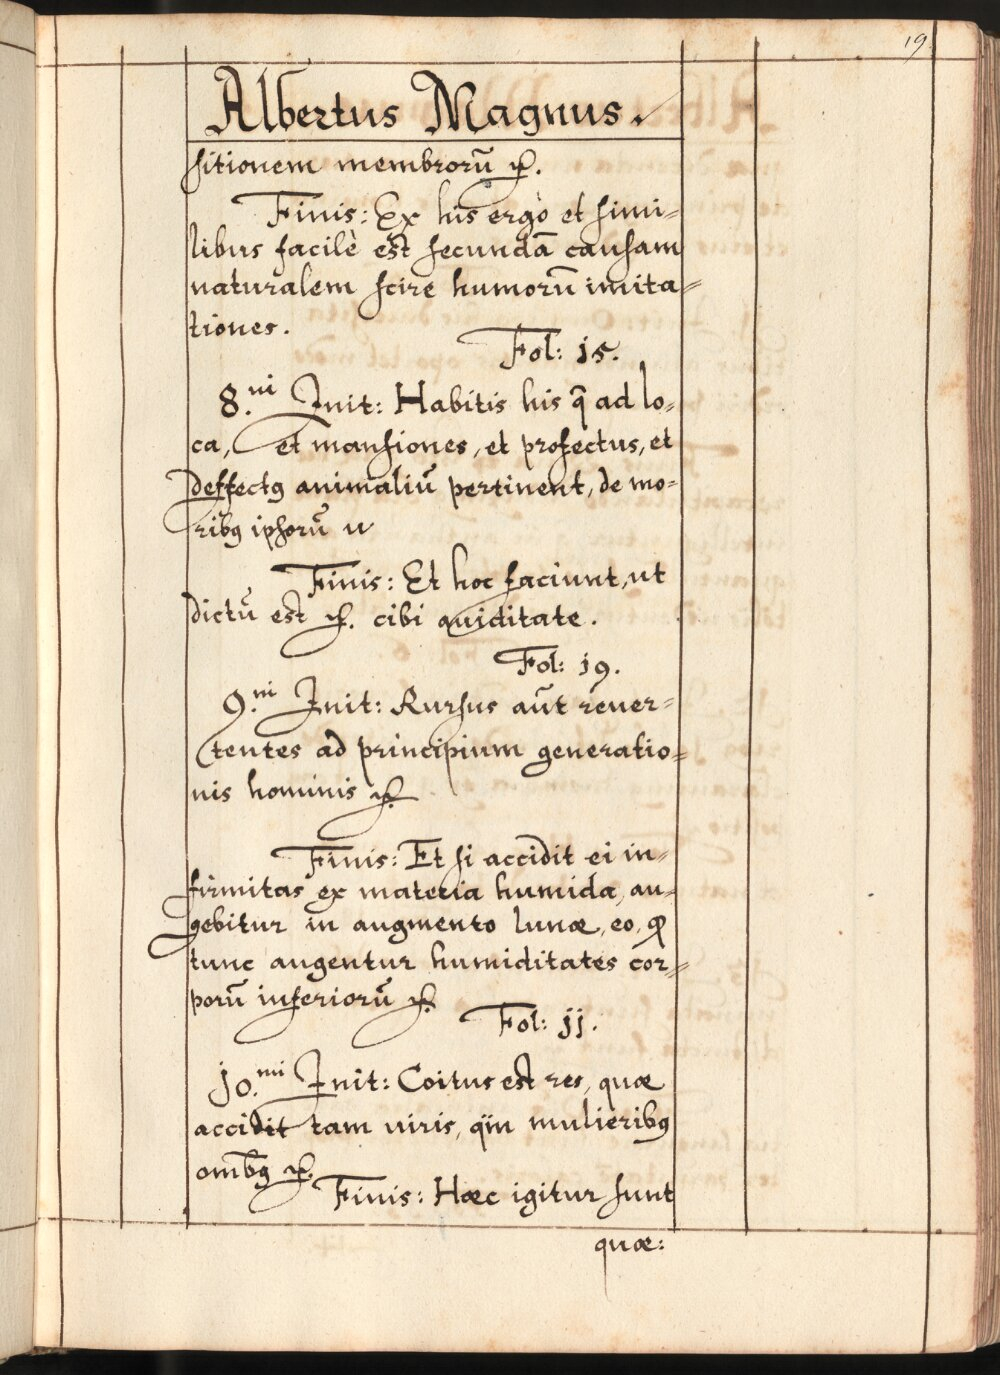 19
Albertus Magnus.
sitionem membrorū
Finis: Ex his ergò et simi=
libus facilè est secundā causam
naturalem scire humorū imita=
tiones.
Fol: 15.
8.ui Init: Habitis his q̄ ad lo=
ca, et mansiones, et profectus, et
deffectꝰ animaliū pertinent, de mo=
ribꝰ ipsorū
Finis: Et hoc faciunt, ut
dictū est cibi auiditate.
Fol: 19.
9.ni Init: Rursus aūt reuer=
tentes ad principium generatio=
nis hominis
Finis: Et si accidit ei in=
firmitas ex materia humida, au=
gebitur in augmento lunæ, eo,
tunc augentur humiditates cor=
porū inferiorū
Fol: jj.
jo.mi Init: Coitus est res, quæ
accidit tam uiris, q̈m mulieribꝰ
om̄bꝰ
Finis: Hæc igitur sunt
quæ: